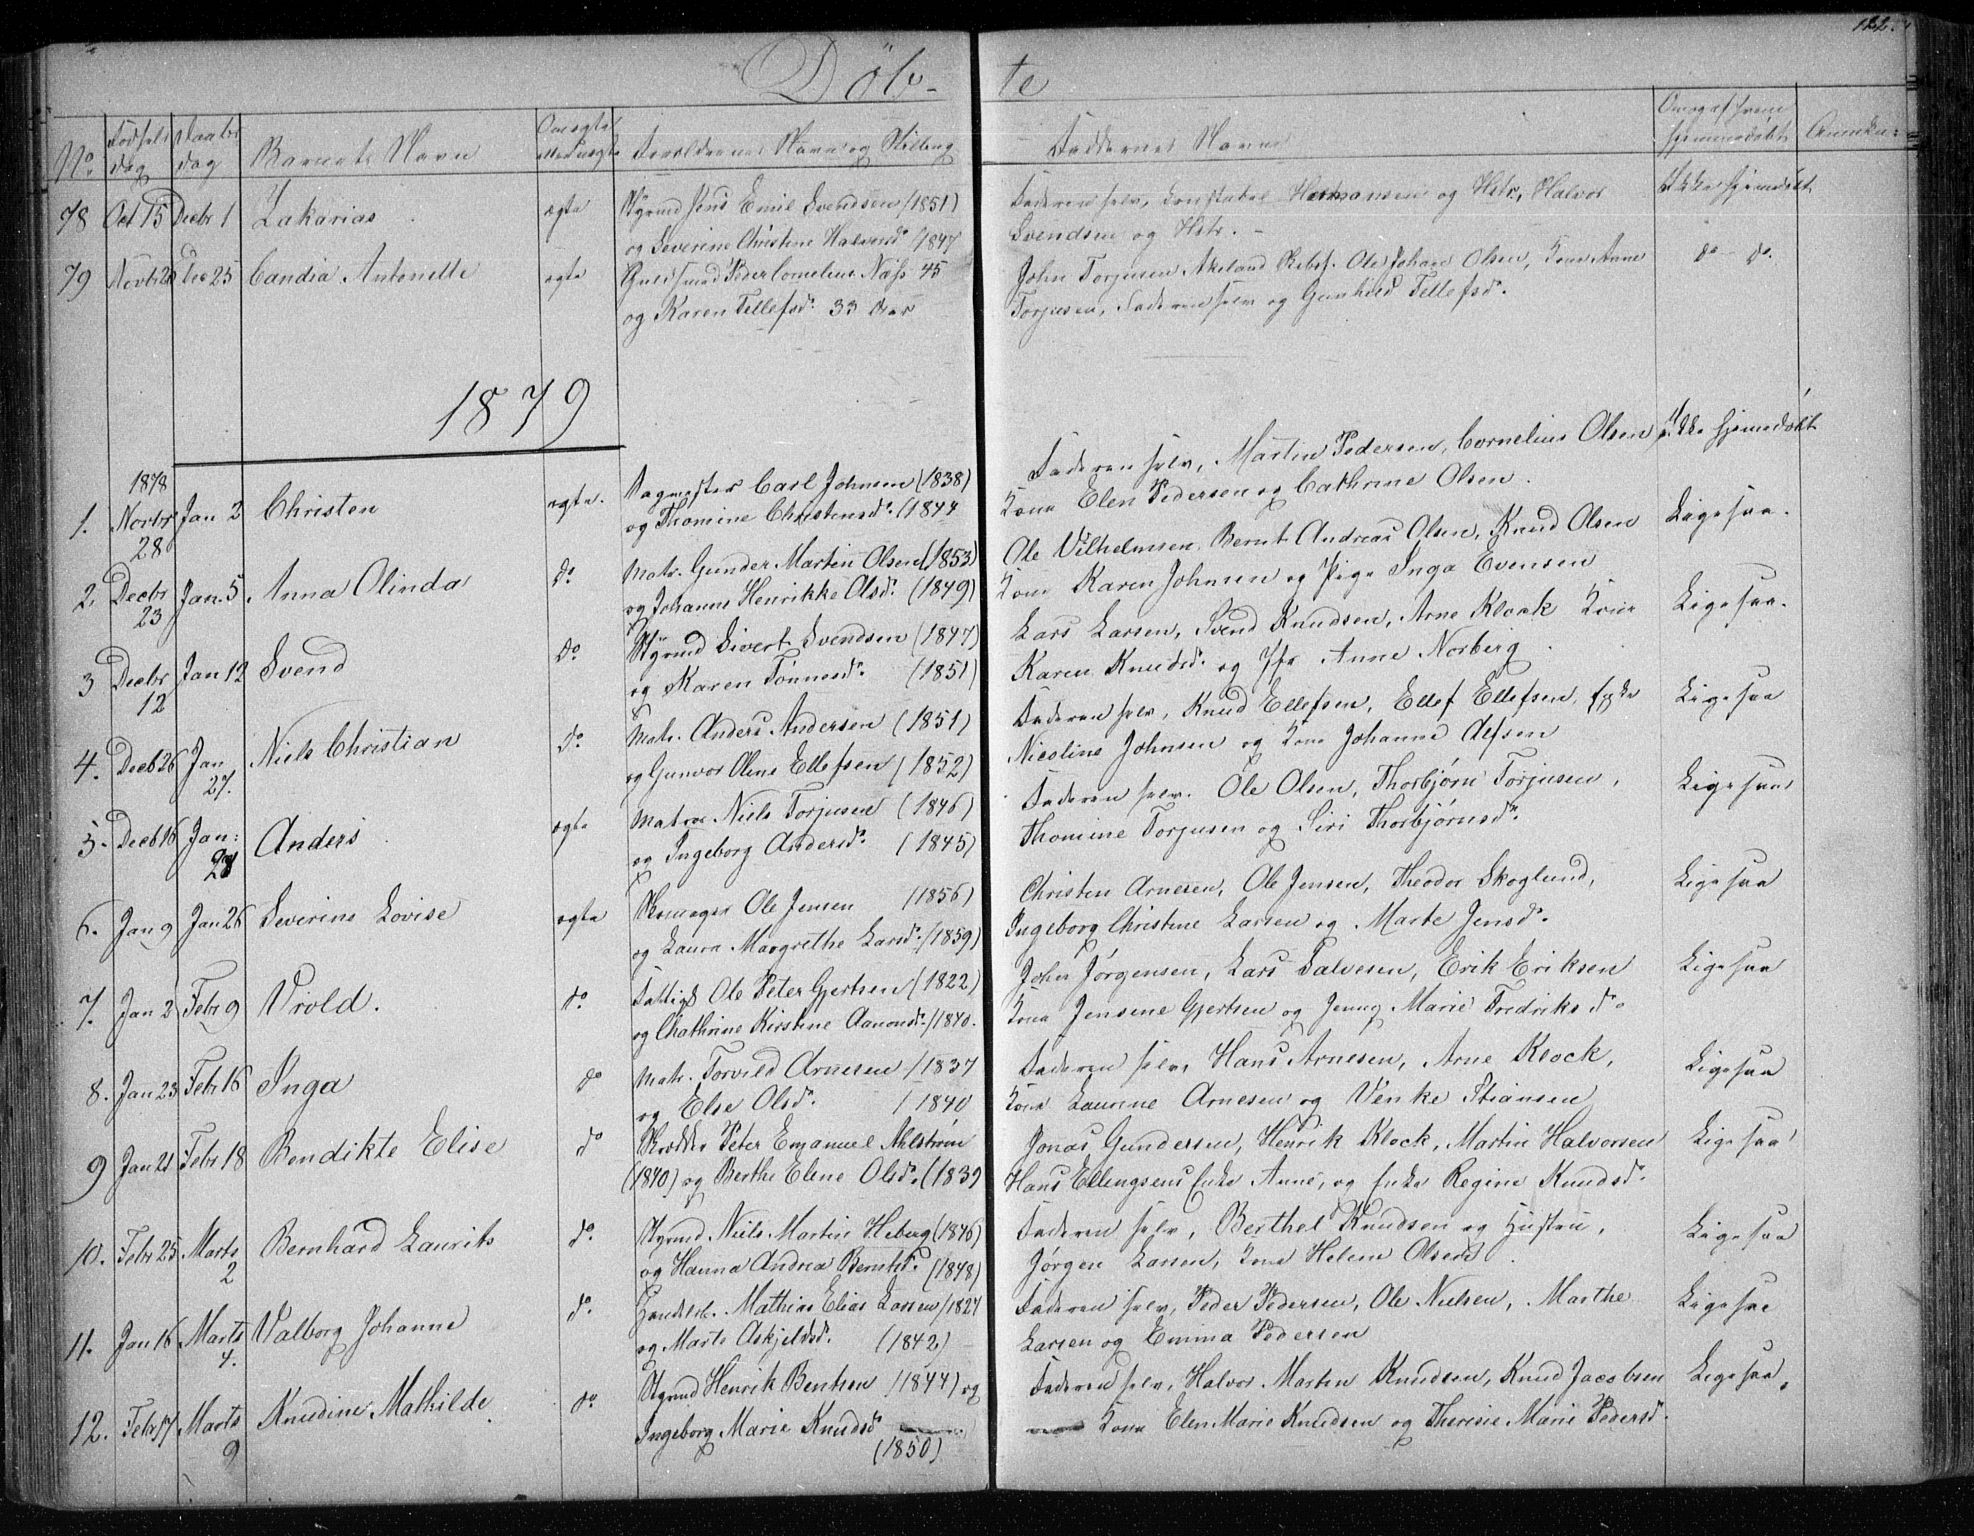 122.
Døb- te
No. Fødsels dag Daabs dag Barnets Navn Forældrenes Navn og Stilling Faddernes Navne
78 Oct 15 Decbr 1 Zakarias ægte Styrmd Jens Emil Svendsen (1851) Faderen selv, Konstabel Hermansen og Hstr, Halvor Ikke hjemdøbt
og Severine Christine Halvorsd. (1847 Svendsen og Hstr.
79 Novbr 20 Dec 25 Candia Antonette ægte Guldsmed Peder Cornelius Næss 45 John Torjusen Akeland Rebsl. Ole Johan Olsen, Kone Anne do do.
og Karen Tellefsd. 33 Aar Torjusen, Faderen selv og Gunhild Tellefsd.
1879
1878
1. Novbr 28 Jan 2 Christen ægte. Dagmester Carl Johnsen (1838) Faderen selv, Martin Pedersen, Cornelius Olsen Ikke hjemmedøbt
og Thomine Christensd. (1844 Kone Elen Pedersen og Cathrine Olsen.
2. Decbr 23 Jan. 5. Anna Olinda do. Matr. Gunder Martin Olsen (1853) Ole Vilhelmsen, Bernt Andreas Olsen, Knud Olsen Ligesaa.
og Johanne Henrikke Olsd. (1849) Kone Karen Johnsen og Pige Inga Evensen
3 Decbr 12 Jan 12 Svend do. Styrmd Sivert Svendsen (1847) Lars Larsen, Svend Knudsen, Arne Klock Kone Ligesaa.
og Karen Tønnesd. (1851) Karen Knudsd. og Jfr Anne Norberg.
4. Decb 26 Jan 27. Niels Christian do. Matr. Anders Andersen (1851) Faderen selv, Knud Ellefsen, Ellef Ellefsen, Ligesaa
og Gunvor Oline Ellefsen (1852) Nicoline Johnsen og Kone Johanne Alfsen
5. Decb 16 Jan: Anders ægte Matros Niels Torjusen (1846) Faderen selv. Ole Olsen, Thorbjørn Torjusen, Ligesaa
og Ingeborg Andersd. (1845) Thomine Torjusen og Siri Thorbjørnsd.
6. Jan 9 Jan 26 Severine Lovise ægte Skomager Ole Jensen (1856) Christen Arnesen, Ole Jensen, Theodor Skoglund, Ligesaa
og Laura Margrethe Larsd. (1859) Ingeborg Christine Larsen og Marte Jensd.
7. Jan 2 Febr 9 Vrold. do. Fattigl Ole Peter Gjertsen (1822) John Jørgensen, Lars Salvesen, Erik Eriksen Ligesaa
og Chathrine Kirstine Aanonsd. (1840. Kone Jensene Gjertsen og Jenny Marie Fredriksd.
8. Jan 23 Febr 16 Inga do Matr. Torvild Arnesen (1837 Faderen selv, Hans Arnesen, Arne Klock, Ligesaa
og Else Olsd. (1840 Kone Laurine Arnesen og Venke Stiansen
9 Jan 21 Febr 18 Bendikte Elise do Skrædder Peter Emanuel Ahlstrøm Jonas Gundersen, Henrik Klock, Martin Halvorsen Ligesaa
(1840) og Berthe Elene Olsd. (1839 Hans Ellingsens Enke Anne, og Enke Regine Knudsd.
10. Febr 25 Marts 2 Bernhard Laurits do. Styrmd Niels Martin Heberg (1846) Faderen selv, Berthel Knudsen og Hustru, Ligesaa
og Hanna Andrea Berntsd. (1848) Jørgen Larsen, Kone Helene Olsen.
11. Jan 16 Marts 4. Valborg Johanne do. Handelsb. Mathias Elias Larsen (1827 Faderen selv, Peder Pedersen, Ole Nielsen, Marthe Ligesaa
og Marte Askjeldsd. (1842) Larsen og Emma Pedersen
12. Febr 17 Marts 9 Knudine Mathilde do Styrmd Henrik Bentsen (1844) og Faderen selv, Halvor Martin Knudsen, Knud Jacobsen Ligesaa.
Ingeborg Marie Knudsd. (1850) Kone Elen Marie Knudsen og Theresie Marie Pedersd.